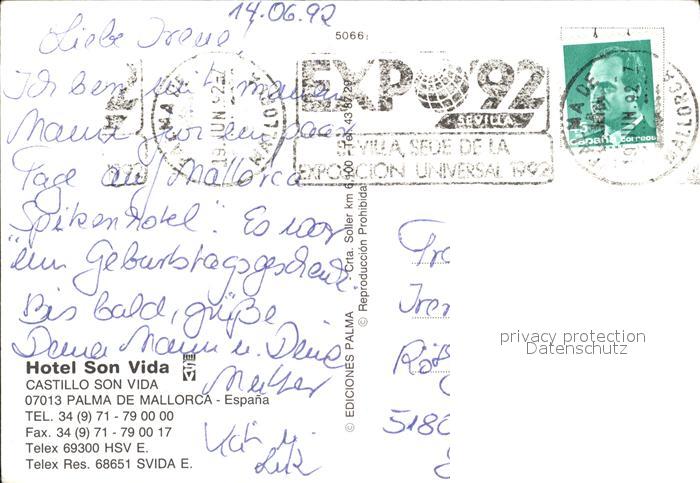 14.06.92
Liebe Irene,
Ich bin mit meinem
Mann für ein paar
Tage auf Mallorca
Spitzenhotel". Es war
"ein Geburtstagsgeschenk.
Bis bald, grüße
Deinen Mann u. Deine
Mutter
Hotel Son Vida
CASTILLO SON VIDA
07013 PALMA DE MALLORCA - España
TEL. 34 (9) 71 - 79 00 00
Fax. 34 (9) 71 - 79 00 17
Telex 69300 HSV E.
Telex Res. 68651 SVIDA E.
© EDICIONES PALMA - Crta. Soller km
© Reproducción Prohibida
5066
PALMA DE MALLORCA
19 JUN 92
EXPO '92
SEVILLA
SEVILLA, SEDE DE LA
EXPOSICION UNIVERSAL 1992
España correos
Fr
Iren
Röß
5180
privacy protection
Datenschutz